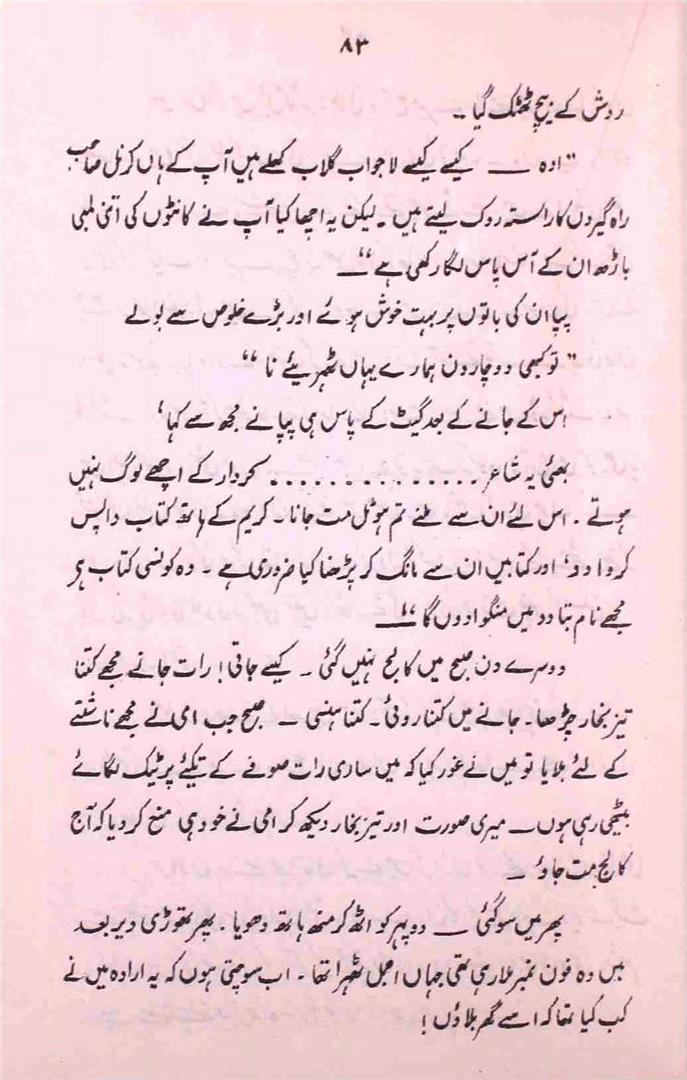 ۸۳
روش کے بیچ ٹھٹک گیا ۔
”ادہ — کیسے کیسے لاجواب گلاب کھلے ہیں آپ کے ہاں کرنل صاحب
راہ گیروں کا راستہ روک لیتے ہیں ۔ لیکن یہ اچھا کیا آپ نے کانٹوں کی اتنی لمبی
باڑھ ان کے آس پاس لگا رکھی ہے“—
پپا ان کی باتوں پر بہت خوش ہوئے اور بڑے خلوص سے بولے
”تو کبھی دو چار دن ہمارے یہاں ٹھہریئے نا“
اس کے جانے کے بعد گیٹ کے پاس ہی پپا نے مجھ سے کہا‘
بھئی یہ شاعر .............. کردار کے اچھے لوگ نہیں
ہوتے ۔ اس لئے ان سے ملنے تم ہوٹل مت جانا۔ کریم کے ہاتھ کتاب واپس
کروا دو‘ اور کتابیں ان سے مانگ کر پڑھنا کیا ضروری ہے ۔ وہ کونسی کتاب ہر
مجھے نام بتا دو میں منگوا دوں گا“—
دوسرے دن صبح میں کالج نہیں گئی ۔ کیسے جاتی! رات جانے مجھے کتنا
تیز بخار چڑھا۔ جانے میں کتنا روئی۔ کتنا ہنسی — صبح جب امی نے مجھے ناشتے
کے لئے بلایا تو میں نے غور کیا کہ میں ساری رات صوفے کے تکیئے پر ٹیک لگائے
بیٹھی رہی ہوں — میری صورت اور تیز بخار دیکھ کر امی نے خود ہی منع کر دیا کہ آج
کالج مت جاؤ —
پھر میں سو گئی — دوپہر کو اٹھ کر منھ ہاتھ دھویا ۔ پھر تھوڑی دیر بعد
میں وہ فون نمبر ملا رہی تھی جہاں اجمل ٹھہرا تھا ۔ اب سوچتی ہوں کہ یہ ارادہ میں نے
کب کیا تھا کہ اسے گھر بلاؤں!